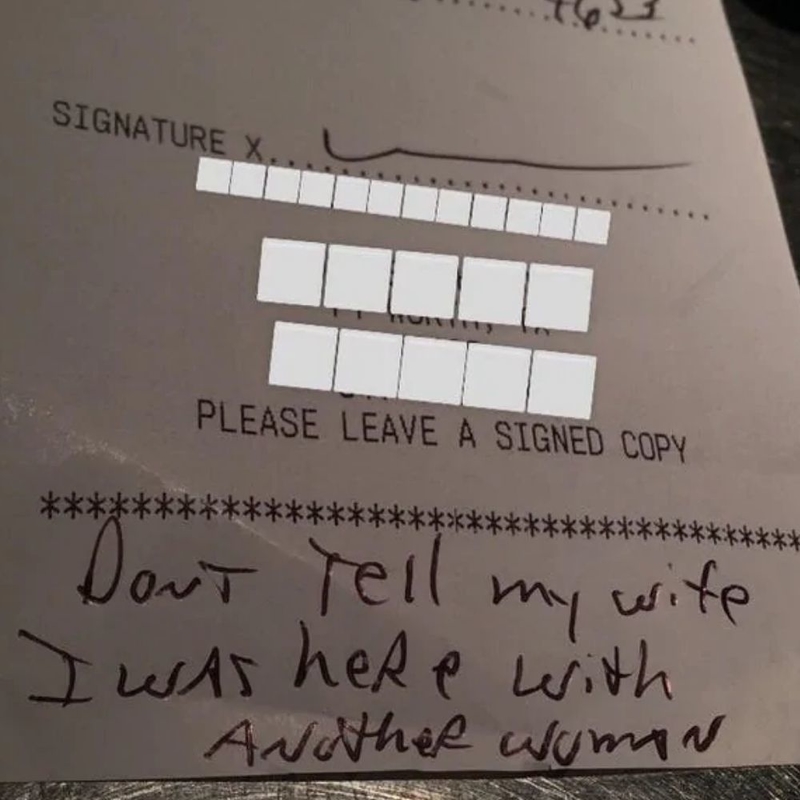 SIGNATURE X
PLEASE LEAVE A SIGNED COPY
****************************************
DONT Tell my wife
I WAS heRe with
ANotheR womaN